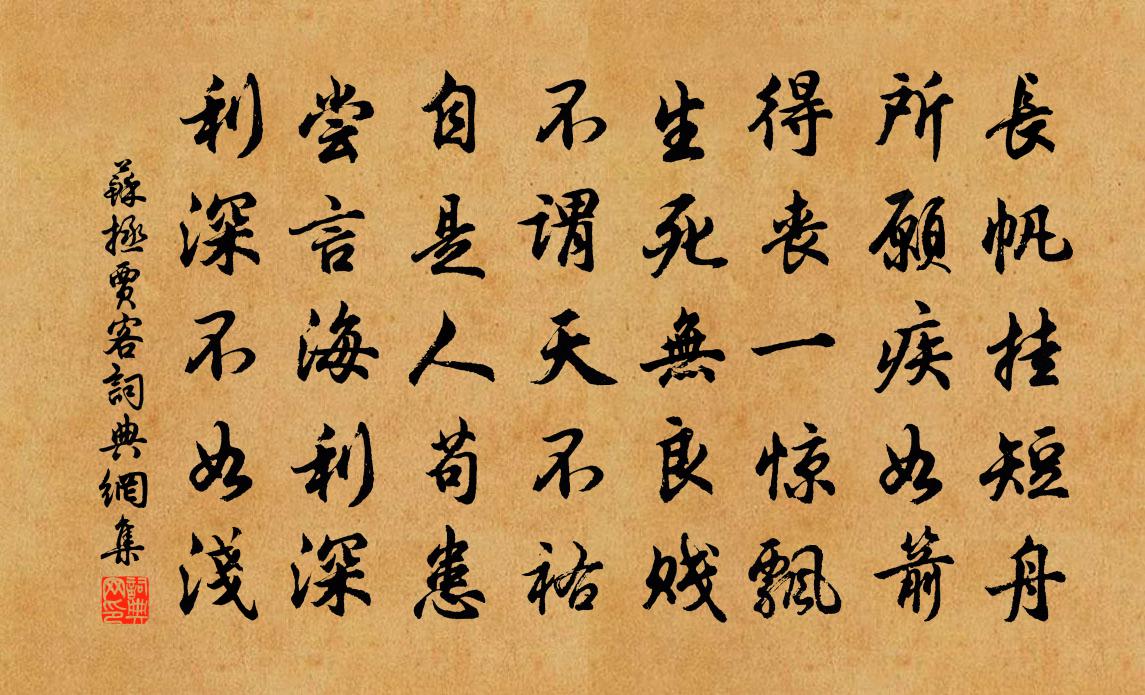 長帆挂短舟
所願疾如箭
得丧一惊飄
生死無良贱
不謂天不祐
自是人苟患
尝言海利深
利深不如淺
蘇拯賈客詞典網集
詞典网印